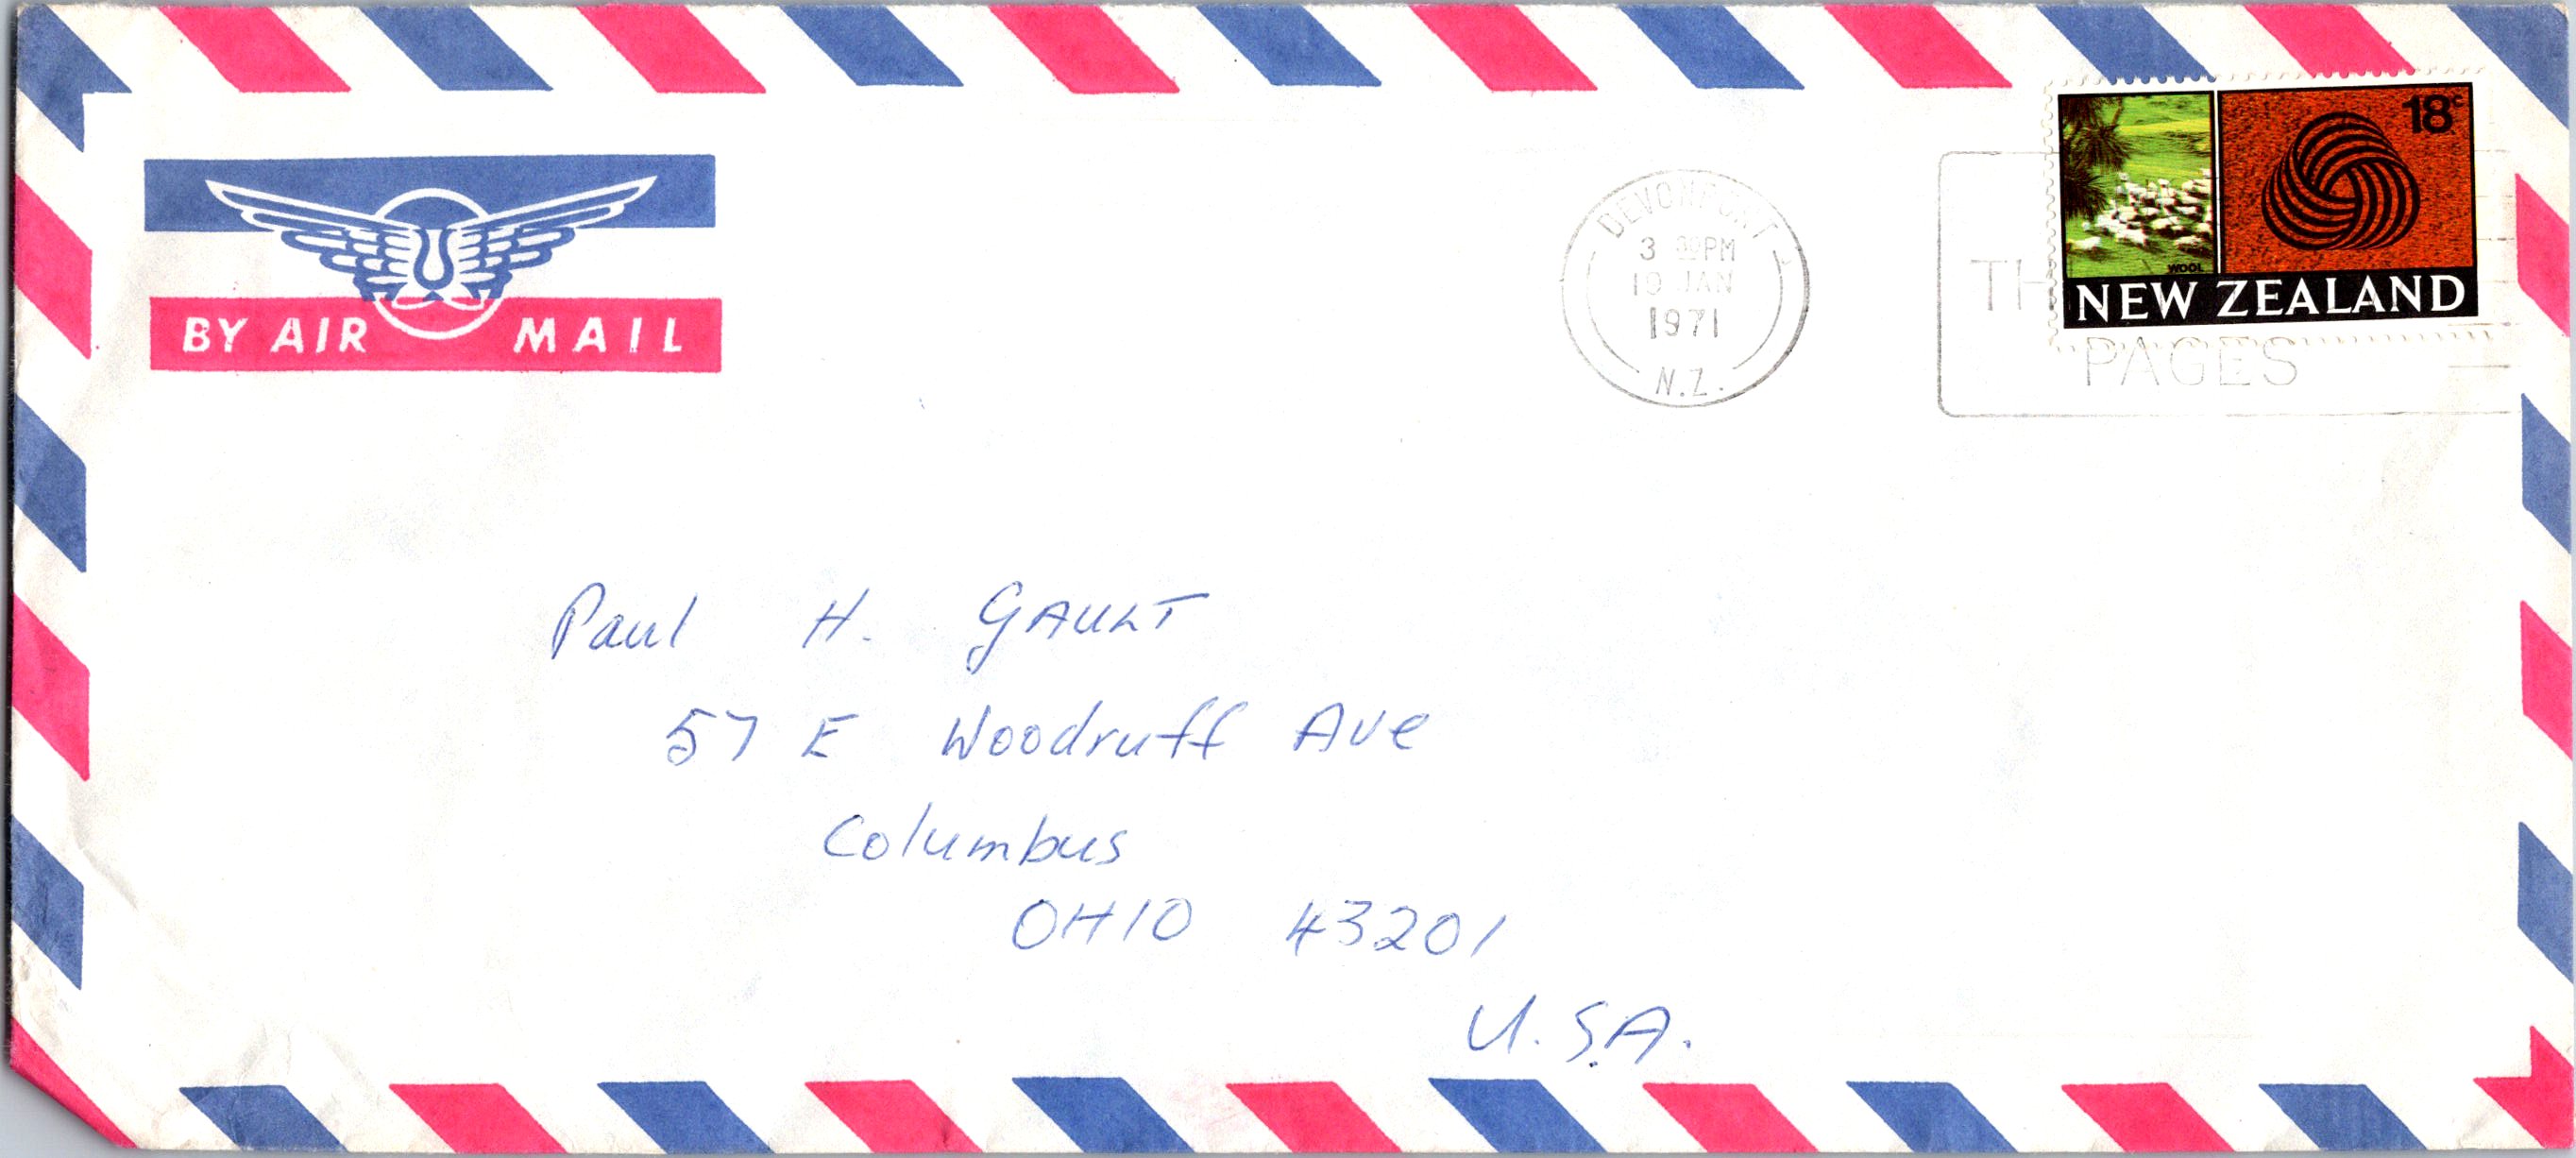 BY AIR MAIL
DEVONPORT
3 30PM
19 JAN
1971
N.Z.
18c
WOOL
NEW ZEALAND
PAGES
Paul H. GAULT
57 E Woodruff Ave
Columbus
OHIO 43201
U.S.A.